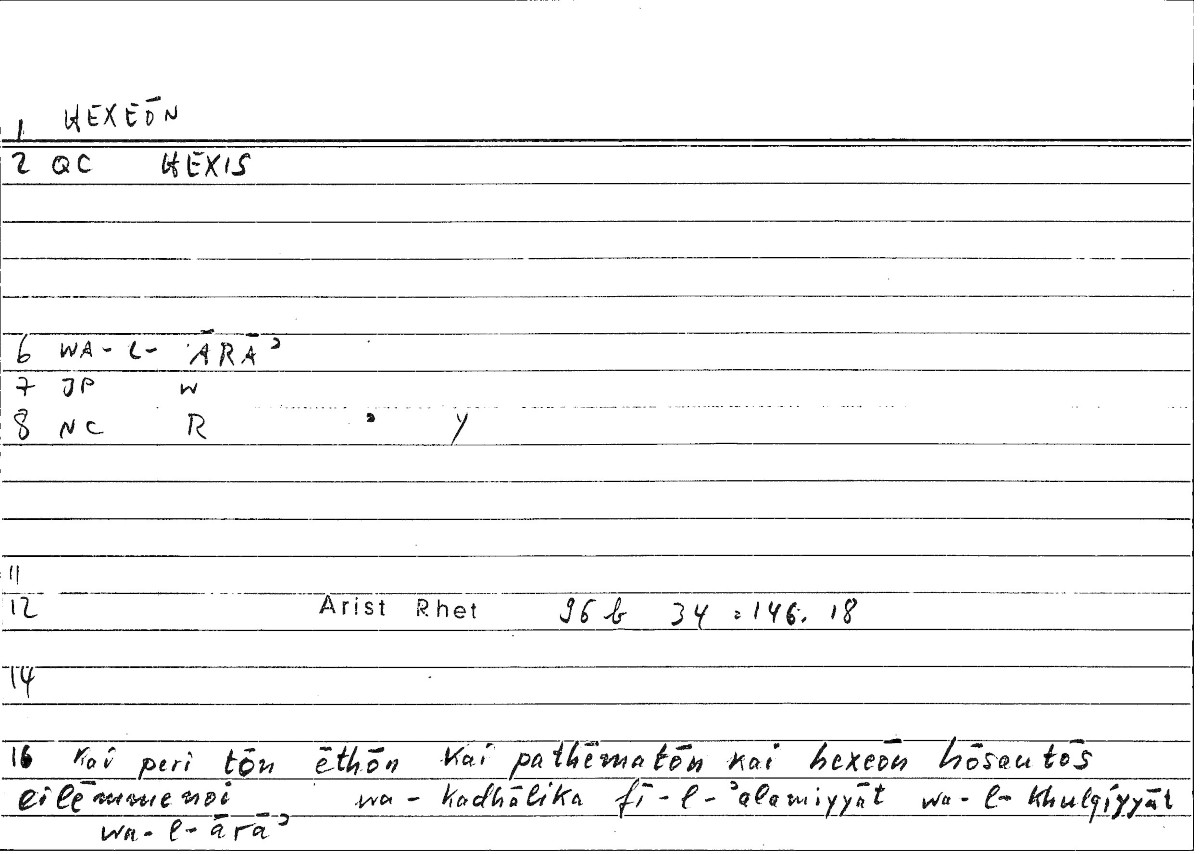 1 HEXEŌN
2 QC HEXIS
6 WA-L- ĀRĀʾ
7 JP W
8 NC R ʾ Y
11
12 Arist Rhet 96 b 34 = 146. 18
14
16 kai peri tōn ēthōn kai pathēmatōn kai hexeōn hōsautōs
eilēmmenoi wa-kadhālika fī-l-ʾalamiyyāt wa-l-khulqiyyāt
wa-l-ārāʾ